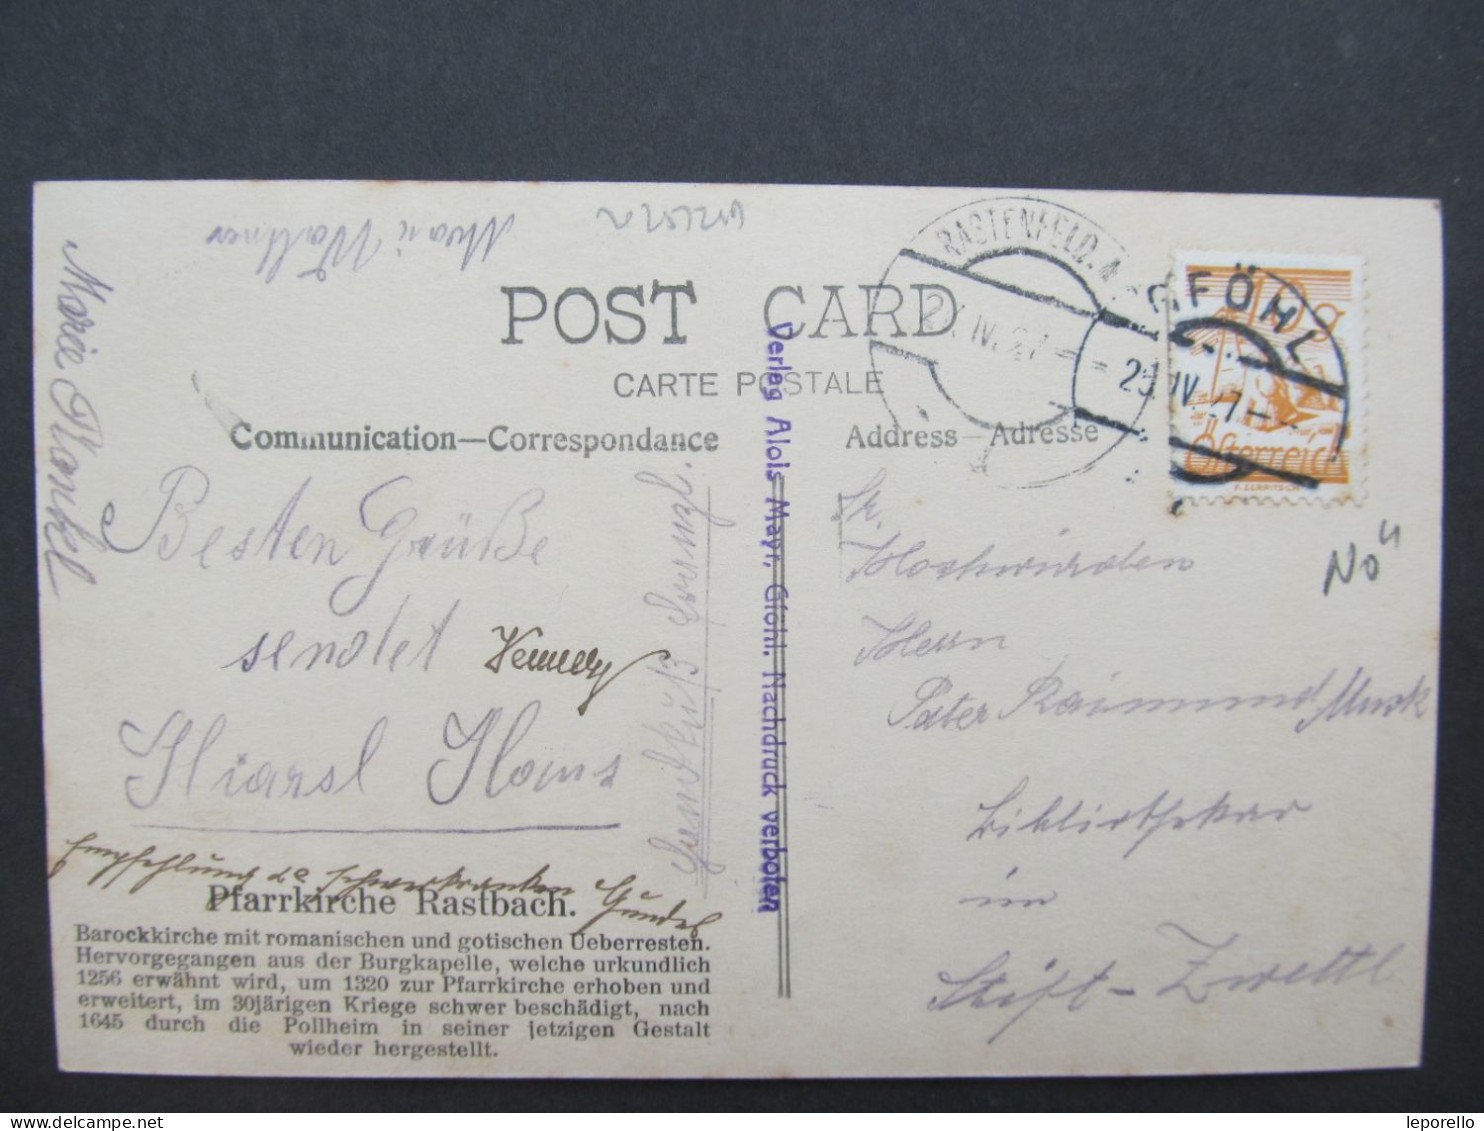 Mari Wallner
Marie Plankl
POST CARD
CARTE POSTALE
Communication—Correspondance
Address—Adresse
RASTENFELD
IV. 27
GFÖHL
25 IV 27
10 g
Österreich
Besten Grüße
sendet
Hiarsl Hans
Verlag Alois Mayr, Gföhl. Nachdruck verboten
Hochwürden
Herrn
Pater Raimund
Bibliothekar
im
Stift-Zwettl
NÖ
Empfehlung
Pfarrkirche Rastbach.
Barockkirche mit romanischen und gotischen Ueberresten.
Hervorgegangen aus der Burgkapelle, welche urkundlich
1256 erwähnt wird, um 1320 zur Pfarrkirche erhoben und
erweitert, im 30järigen Kriege schwer beschädigt, nach
1645 durch die Pollheim in seiner jetzigen Gestalt
wieder hergestellt.
leporello